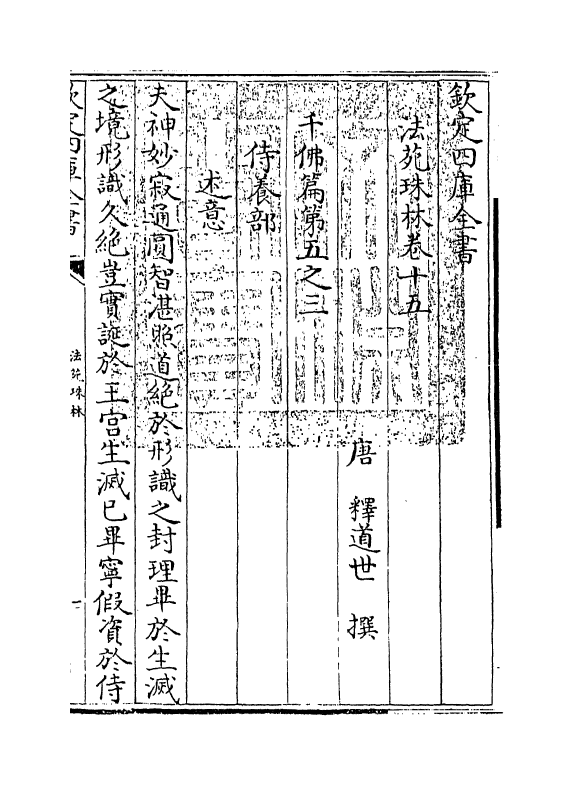 欽定四庫全書
法苑珠林卷十五
唐 釋道世 撰
千佛篇第五之三
侍養部
述意
夫神妙寂通圓智湛照道絶於形識之封理畢於生滅
之境形識久絶豈實誕於王宫生滅已畢寧假資於侍
欽定四庫全書
法苑珠林
一